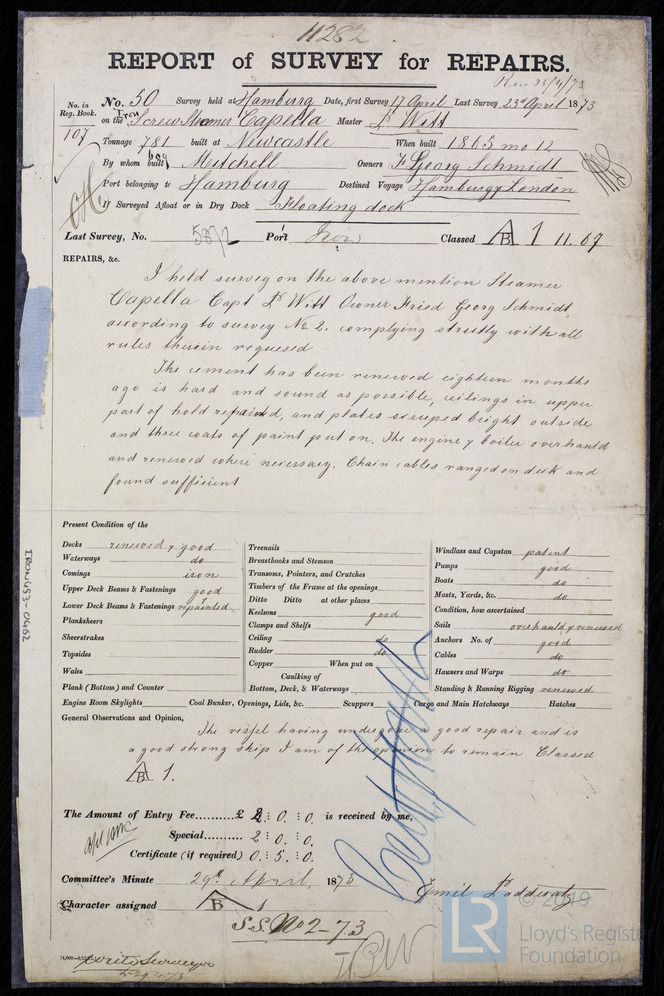 11282
REPORT of SURVEY for REPAIRS.
Rec 26/4/73
No. in Reg. Book. 107
No. 50 Survey held at Hamburg Date, first Survey 17 April Last Survey 23rd April 1873
on the Iron Screw Steamer Capella Master D Witt
Tonnage 781 built at Newcastle When built 1865 mo 12
By whom built Mitchell Owners F. Georg Schmidt
Port belonging to Hamburg Destined Voyage Hamburg y London
If Surveyed Afloat or in Dry Dock Floating dock
Last Survey, No. 5872 Port Iron Classed A B 1 11.67
REPAIRS, &c.
I held survey on the above mention Steamer
Capella Capt D Witt Owner Fried Georg Schmidt,
according to survey No 2. complying strictly with all
rules therein requesed
The cement has been renewed eighteen months
ago is hard and sound as possible, ceilings in upper
part of hold repaired, and plates scruped bright outside
and three coats of paint put on. The engine y boiler overhauld
and renewed where necessary. Chain cables ranged on deck and
found sufficient
Present Condition of the
Decks renewed y good
Waterways do
Comings iron
Upper Deck Beams & Fastenings good
Lower Deck Beams & Fastenings repainted
Planksheers
Sheerstrakes
Topsides
Wales
Plank (Bottom) and Counter
Treenails
Breasthooks and Stemson
Transoms, Pointers, and Crutches
Timbers of the Frame at the openings
Ditto Ditto at other places
Keelsons good
Clamps and Shelfs
Ceiling do
Rudder do
Copper When put on
Caulking of
Bottom, Deck, & Waterways
Windlass and Capstan patent
Pumps good
Boats do
Masts, Yards, &c. do
Condition, how ascertained
Sails overhauld y renewed
Anchors No. of good
Cables do
Hausers and Warps do
Standing & Running Rigging renewed
Engine Room Skylights Coal Bunker, Openings, Lids, &c. Scuppers Cargo and Main Hatchways Hatches
General Observations and Opinion,
The vessel having undergone a good repair and is
a good strong ship I am of the opinion to remain Classed
A B 1.
The Amount of Entry Fee.......... £ 2 : 0 : 0. is received by me,
Special......... 2 : 0 : 0.
Certificate (if required) 0 : 5 : 0.
Committee's Minute 29th April, 1873
Character assigned A B 1
S.S. No 2-73
write Surveyor
29.4.73
IRON453-0462
LR
© 2019
Lloyd's Register
Foundation